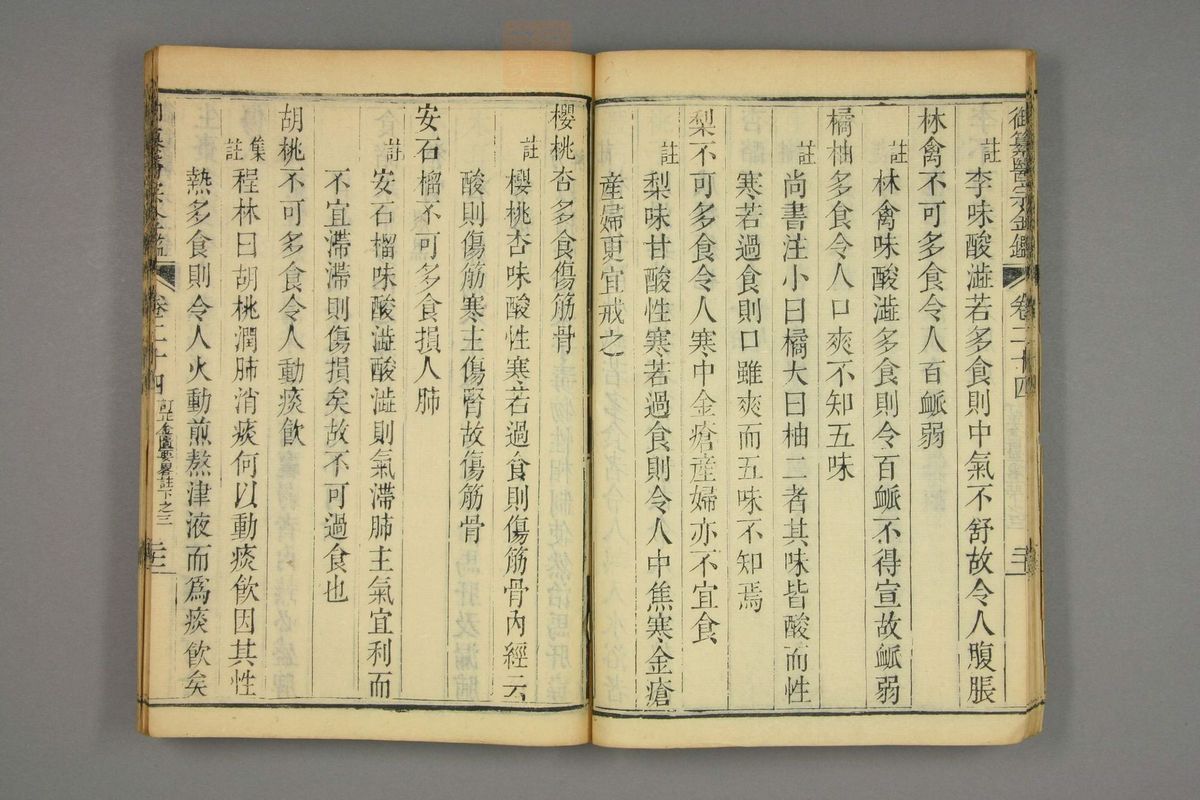 御纂醫宗金鑑 卷二十四
註 李味酸澁若多食則中氣不舒故令人腹脹
林禽不可多食令人百䘑弱
註 林禽味酸澁多食則令百䘑不得宣故䘑弱
橘柚多食令人口爽不知五味
註 尚書注小曰橘大曰柚二者其味皆酸而性
寒若過食則口雖爽而五味不知焉
梨不可多食令人寒中金瘡產婦亦不宜食
註 梨味甘酸性寒若過食則令人中焦寒金瘡
產婦更宜戒之
櫻桃杏多食傷筋骨
註 櫻桃杏味酸性寒若過食則傷筋骨內經云
酸則傷筋寒主傷腎故傷筋骨
安石榴不可多食損人肺
註 安石榴味酸澁酸澁則氣滯肺主氣宜利而
不宜滯滯則傷損矣故不可過食也
胡桃不可多食令人動痰飲
集註 程林曰胡桃潤肺消痰何以動痰飲因其性
熱多食則令人火動煎熬津液而爲痰飲矣
卷二十四 訂正金匱要畧註下之三